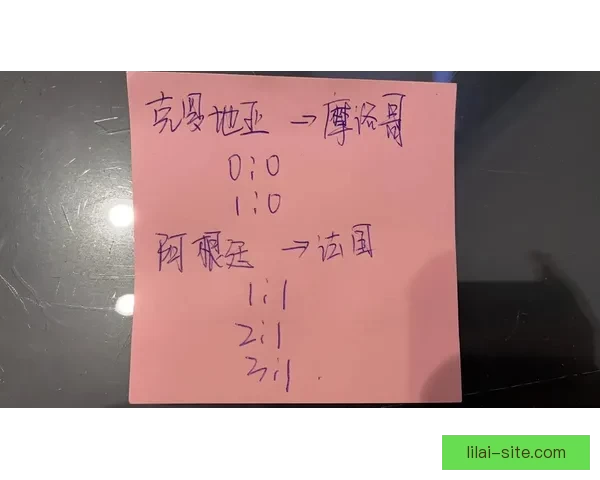 克罗地亚 →摩洛哥
0:0
1:0
阿根廷 →法国
1:1
2:1
3:1.
lilai-site.com